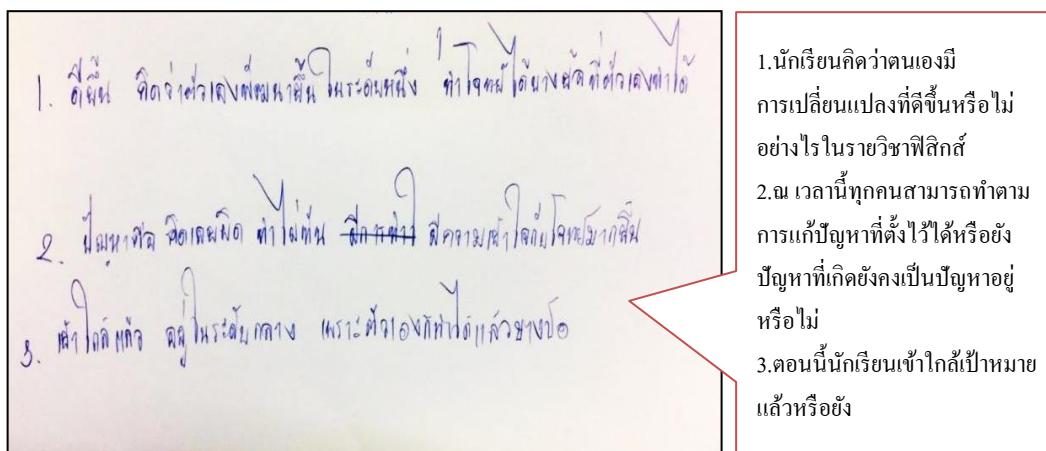 1. ดีขึ้น คิดว่าตัวเองพัฒนาขึ้นในระดับหนึ่ง ทำโจทย์ได้บางข้อที่ตัวเองทำได้
2. ปัญหาคือ คิดเลขผิด ทำไม่ทัน มีการเข้าใจ มีความเข้าใจกับโจทย์มากขึ้น
3. เข้าใกล้แล้ว อยู่ในระดับกลาง เพราะตัวเองก็ทำได้แล้วบางข้อ
1.นักเรียนคิดว่าตนเองมี
การเปลี่ยนแปลงที่ดีขึ้นหรือไม่
อย่างไรในรายวิชาฟิสิกส์
2.ณ เวลานี้ทุกคนสามารถทำตาม
การแก้ปัญหาที่ตั้งไว้ได้หรือยัง
ปัญหาที่เกิดยังคงเป็นปัญหาอยู่
หรือไม่
3.ตอนนี้นักเรียนเข้าใกล้เป้าหมาย
แล้วหรือยัง